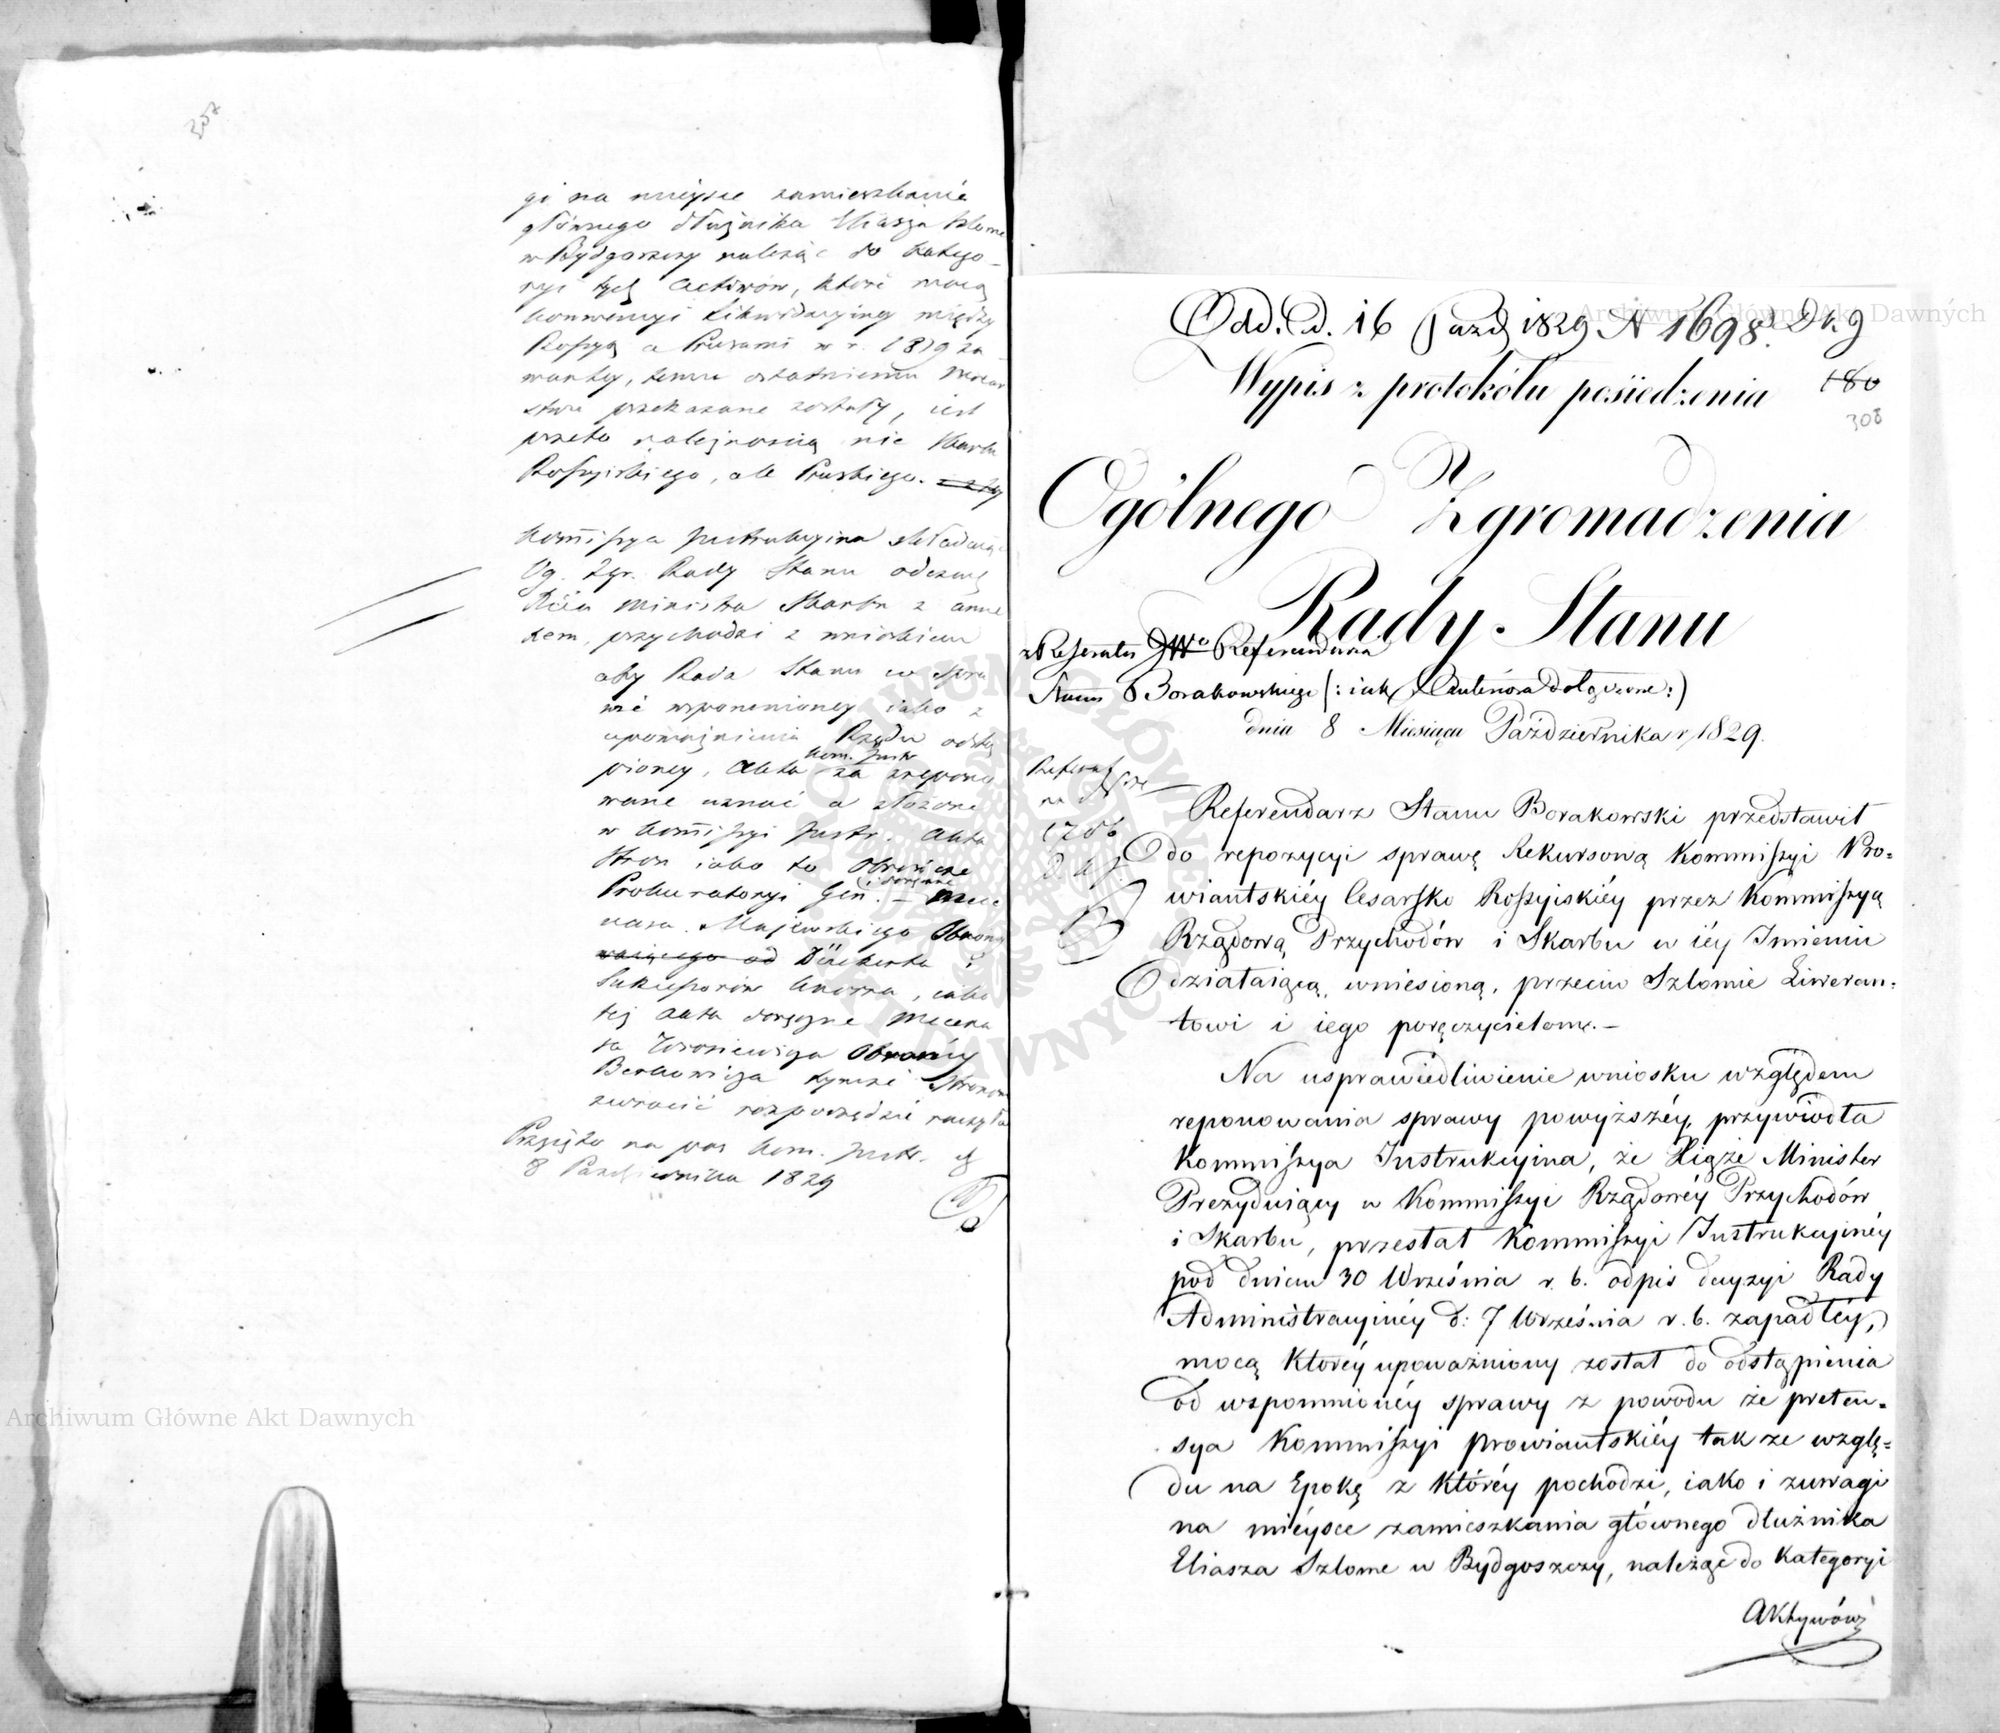 307
gi na mieysce zamieszkania
głównego dłużnika Eliasza Szlome
w Bydgoszczy należąc do katego-
ryi tych activów, które mocą
konwencyi likwidacyiney między
Rossyą a Prusami w r. 1819 za-
wartey, temu ostatniemu Mocar
stwu przekazane zostały, iest
przeto należnością nie Skarbu
Rossyiskiego, ale Pruskiego.
Kom̃issya Instrukcyina składaiąc
Og. Zgr. Rady Stanu odezwę
Xcia Ministra Skarbu z anne
xem, przychodzi z wnioskiem
aby Rada Stanu w spra
wie wspomnioney iako z
upoważnienia Rządu odstą
pioney, akta kom. Instr. za repono
wane uznać a złożone
w Kom̃issyi Instr. akta
stron iako to Obrończe
Prokuratoryi Gen. – i doręczne Mece
nasa Majewskiego Obrońcy
Dückerta i
Sukcessorów Knorra, iako
też akta doręczne Mecena
sa Wosiewicza Obrońcy
Berkowicza tymże stronom
zwrócić rozporządzić raczyła
Przyięto na pos. Kom. Instr. d.
8 Października 1829
Odd. d. 16 Paźdz 1829 N 1698. D k g
Wypis z protokółu posiedzenia
180
308
Ogólnego Zgromadzenia
Rady Stanu
z Referatu JWo Referendarza
Stanu Borakowskiego (: iak dołączone :)
dnia 8 Miesiąca Października r. 1829.
Referat
na
1706
D. k g.
Referendarz Stanu Borakowski przedstawił
do repozycyi sprawę Rekursową Kommissyi Pro=
wiantskiéy Cesarsko Rossyiskiéy przez Kommissyą
Rządową Przychodów i Skarbu w iéy Imieniu
działaiącą, wniesioną, przeciw Szlomie Liweran=
towi i iego poręczycielom.–
Na usprawiedliwienie wniosku względem
reponowania sprawy powyższéy, przywiodła
Kommissya Instrukcyina, że Xiąże Minister
Prezyduiący w Kommissyi Rządowéy Przychodów
i Skarbu, przesłał Kommissyi Instrukcyinéy
pod dniem 30 Września r. b. odpis decyzyi Rady
Administracyinéy d: 7 Września r. b. zapadłéy,
mocą któréy upoważniony został do odstąpienia
od wspomnionéy sprawy z powodu że preten=
sya Kommissyi prowiantskiéy tak ze wzglę=
du na Epokę z któréy pochodzi, iako i z uwagi
na mieysce zamieszkania głównego dłużnika
Eliasza Szlome w Bydgoszczy, należąc do kategoryi
aktywów
Archiwum Główne Akt Dawnych
Archiwum Główne Akt Dawnych
Archiwum Główne Akt Dawnych